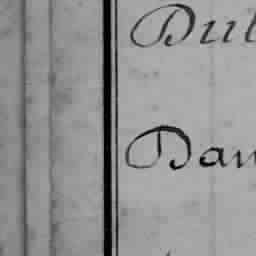 Dul
Dan